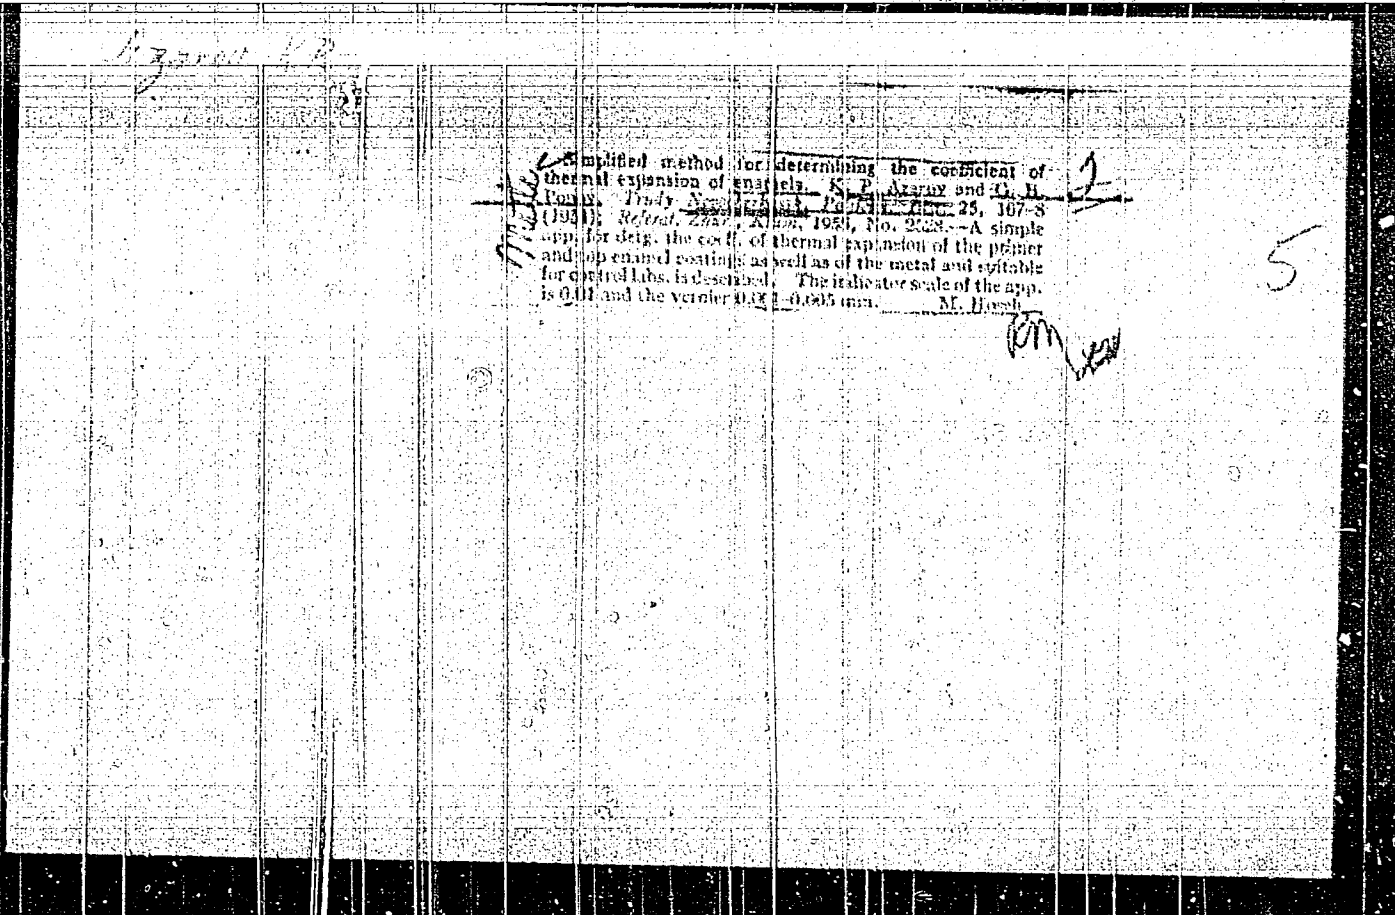 Azarov K.P.
Simplified method for determining the coefficient of
thermal expansion of enamels. K. P. Azarov and G. B.
Trudy 25, 167-8
Referat. Zhur., Khim., 1955, No. —A simple
app. for detg. the coeff. of thermal expansion of the primer
and top enamel coatings as well as of the metal and suitable
for control labs. is described. The indicator scale of the app.
is 0.01 and the vernier mm. M. Hosch
5